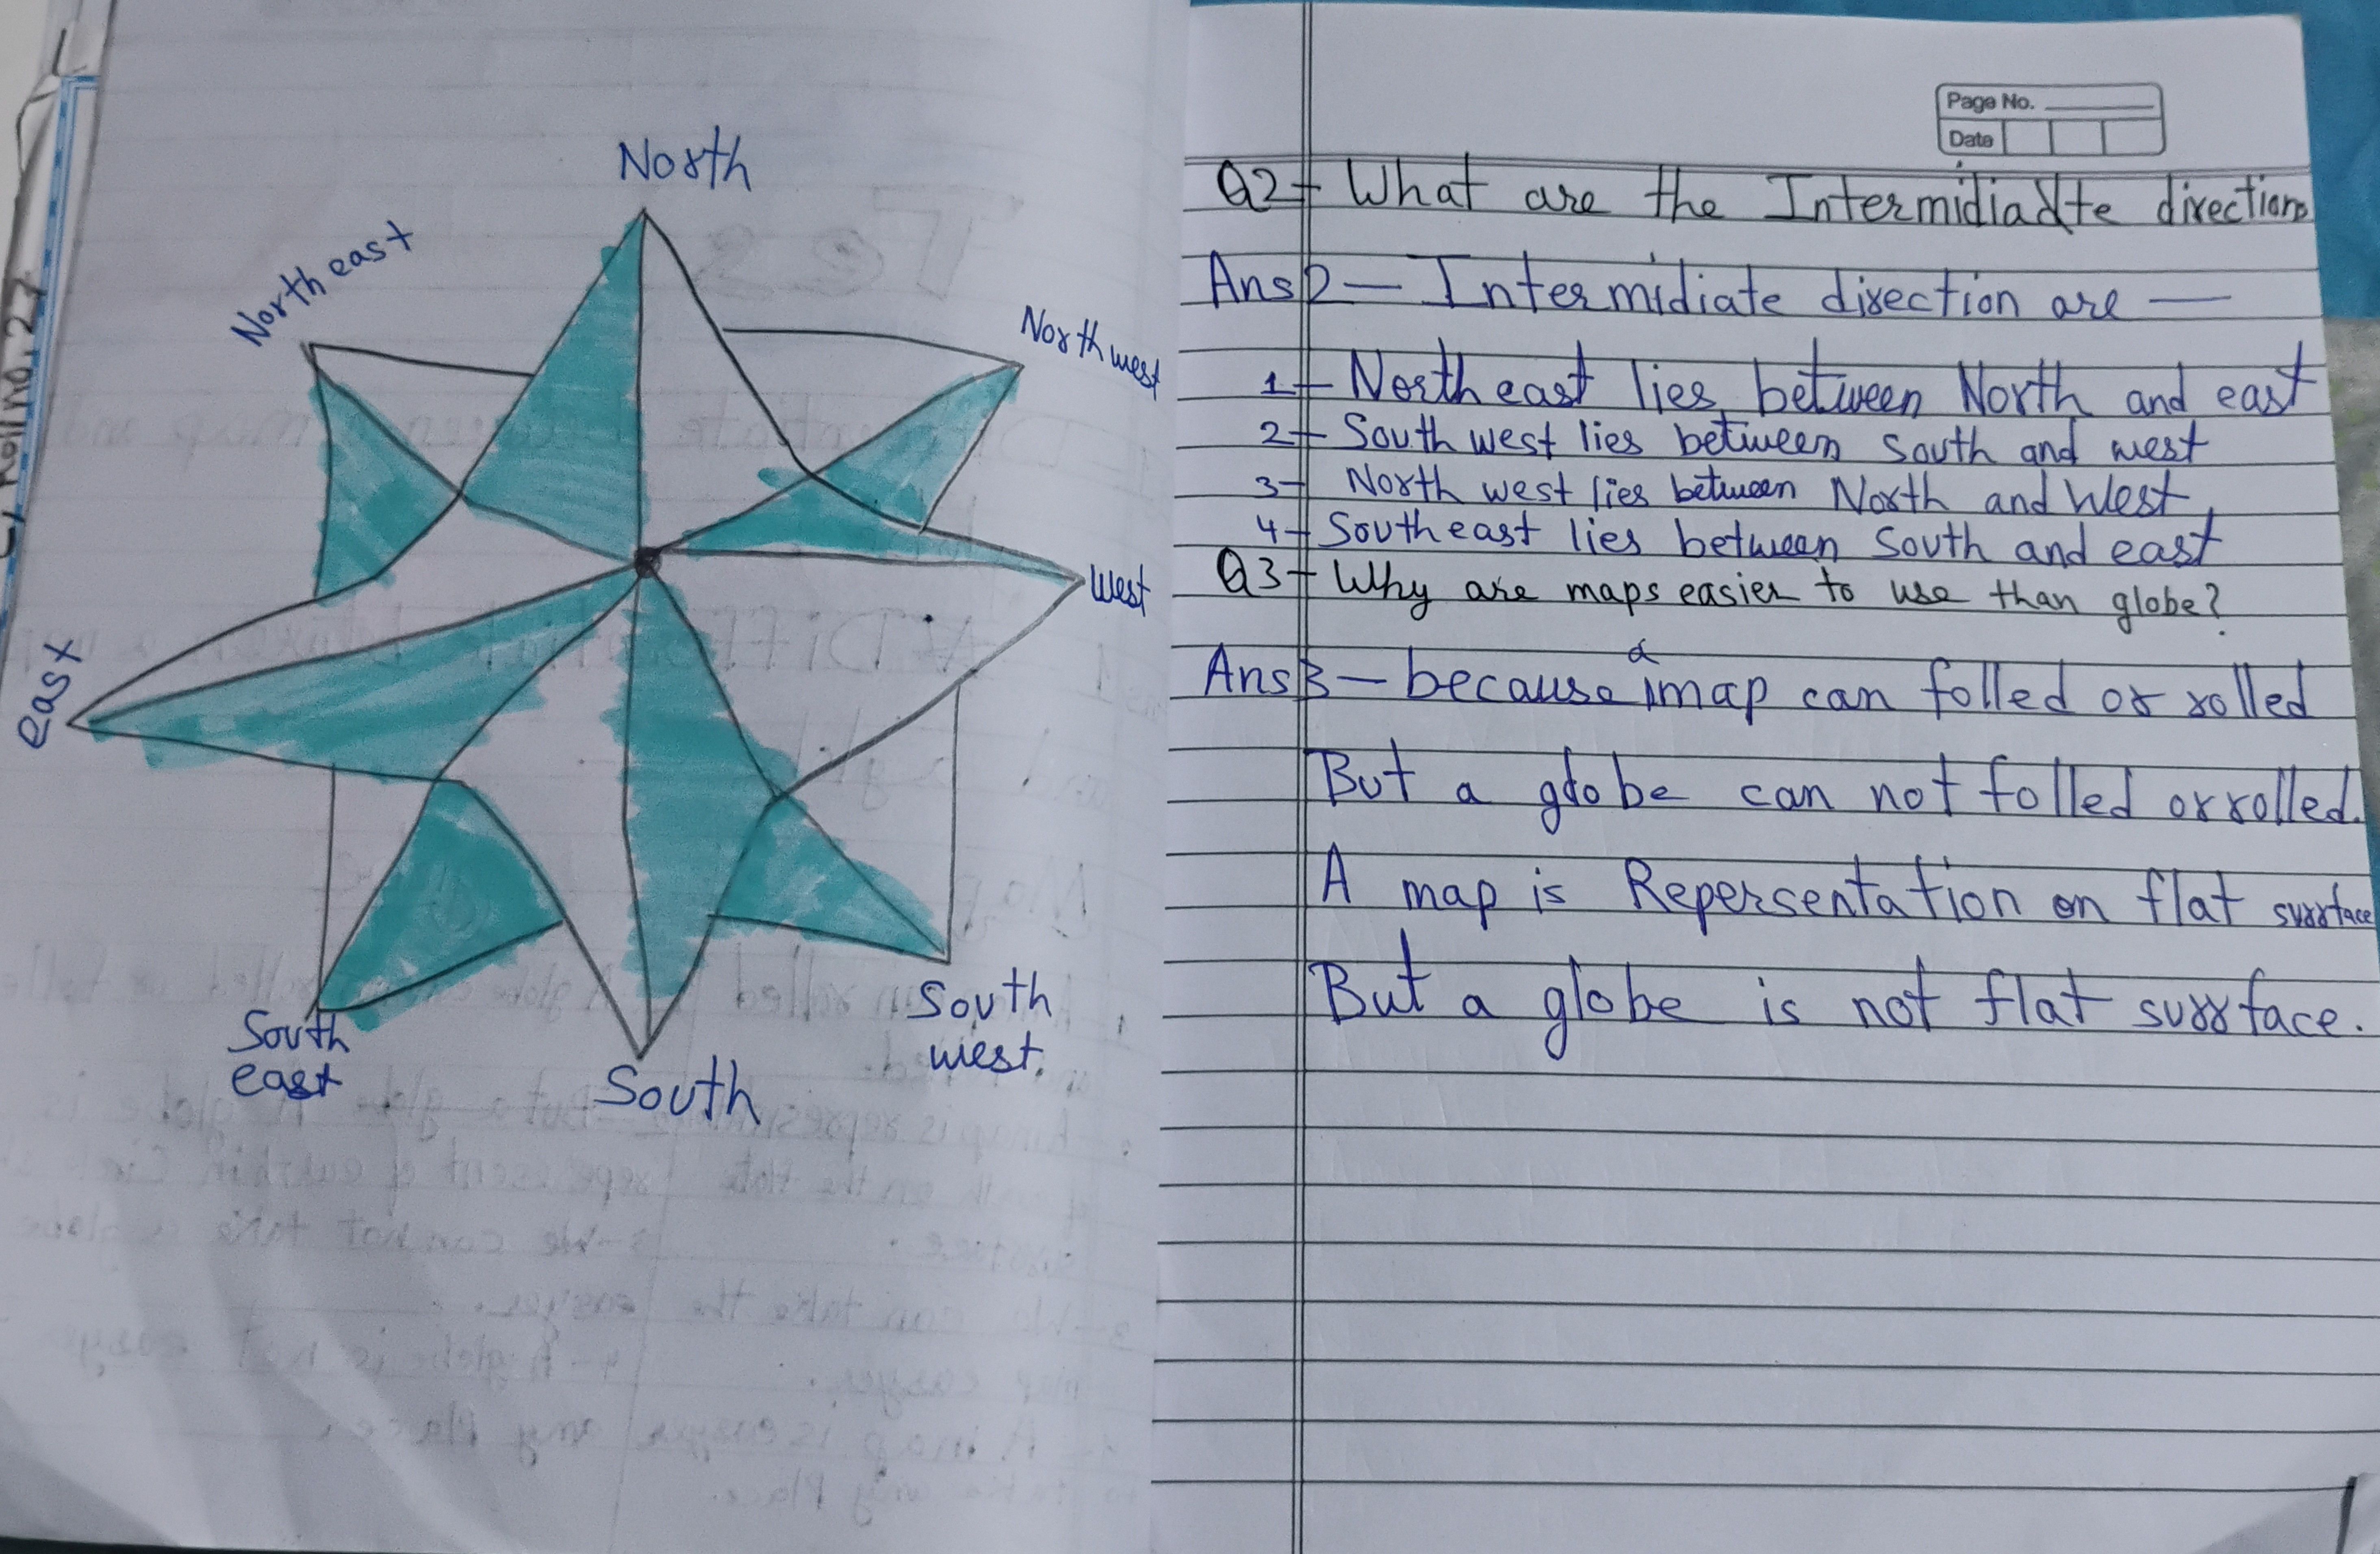 North
North east
North west
west
east
South
east
South
South
west.
Roll no. 27
Page No.
Date
Q2- What are the Intermidiadte directions
Ans2- Intermidiate direction are —
1- North east lies between North and east
2- South west lies between South and west
3- North west lies between North and West
4- South east lies between South and east
Q3- Why are maps easier to use than globe?
Ans3- because a map can folled or rolled
But a globe can not folled or rolled.
A map is Repersentation on flat surrface
But a globe is not flat surrface.